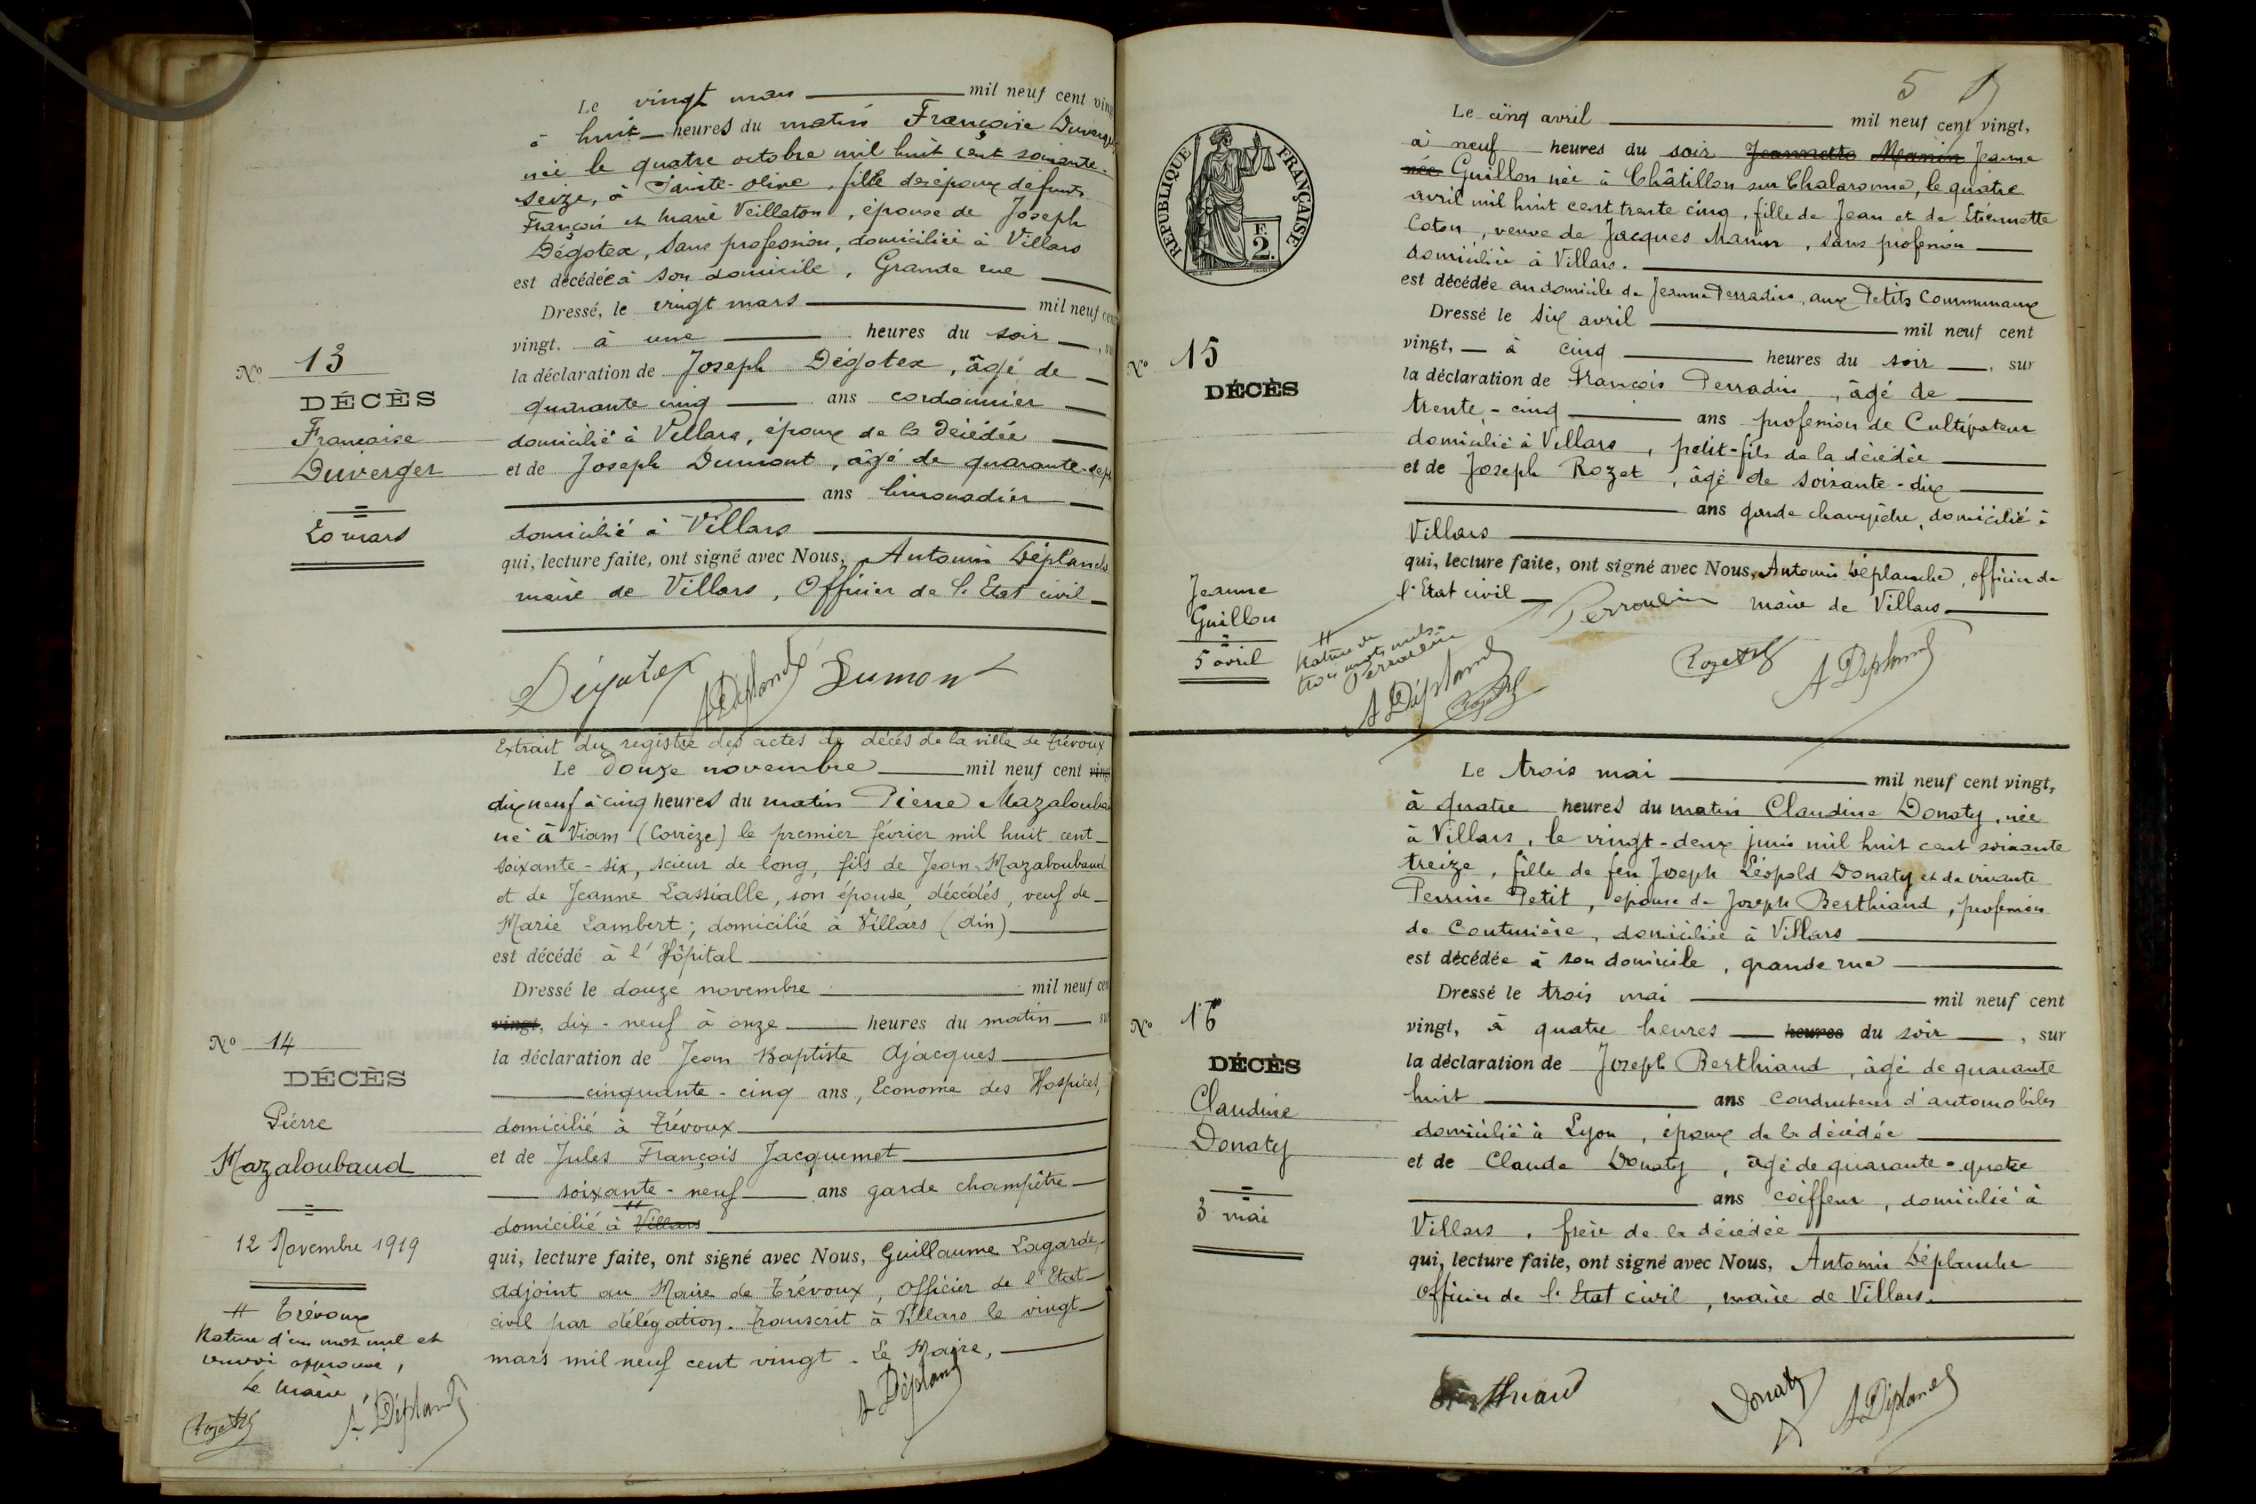 Le vingt mars mil neuf cent vingt
à huit heures du matin Françoise Duverger
née le quatre octobre mil huit cent soixante-
seize, à Sainte-Olive, fille des époux défunts
François et Marie Veilleton, épouse de Joseph
Dégotex, sans profession, domiciliée à Villars
est décédée à son domicile, Grande rue
Dressé, le vingt mars mil neuf cent
vingt, à une heures du soir, su
la déclaration de Joseph Dégotex, âgé de
quarante cinq ans cordonnier
domicilié à Villars, époux de la décédée
et de Joseph Dumont, âgé de quarante-sept
ans limonadier
domicilié à Villars
qui, lecture faite, ont signé avec Nous, Antonin Déplanche
maire de Villars, Officier de l'Etat civil
Dégotex A Déplanche Dumont
No 13
DÉCÈS
Françoise
Duverger
20 mars
Extrait du registre des actes de décès de la ville de Trévoux
Le douze novembre mil neuf cent vingt
dix neuf à cinq heures du matin Pierre Mazaloubaud
né à Viam (Corrèze) le premier février mil huit cent
soixante-six, scieur de long, fils de Jean Mazaloubaud
et de Jeanne Lassialle, son épouse, décédés, veuf de
Marie Lambert; domicilié à Villars (Ain)
est décédé à l'Hôpital
Dressé le douze novembre mil neuf cen
vingt, dix-neuf à onze heures du matin su
la déclaration de Jean Baptiste Ajacques
cinquante-cinq ans, Econome des Hospices,
domicilié à Trévoux
et de Jules François Jacquemet
soixante-neuf ans garde champêtre
domicilié à Villars
qui, lecture faite, ont signé avec Nous, Guillaume Lagarde,
adjoint au Maire de Trévoux, Officier de l'Etat
civil par délégation. Transcrit à Villars le vingt
mars mil neuf cent vingt. Le Maire,
A Déplanche
No 14
DÉCÈS
Pierre
Mazaloubaud
12 Novembre 1919
# Trévoux
Rature d'un mot nul et
renvoi approuvé,
Le Maire,
Rozet A. Déplanche
5
RÉPUBLIQUE FRANÇAISE
F.
2.
Le cinq avril mil neuf cent vingt,
à neuf heures du soir Jeannette Manin Jeanne
née Guillon née à Châtillon sur Chalaronne, le quatre
avril mil huit cent trente cinq, fille de Jean et de Etiennette
Coton, veuve de Jacques Manin, sans profession
domiciliée à Villars.
est décédée au domicile de Jeanne Perradin, aux Petits Communaux
Dressé le six avril mil neuf cent
vingt, à cinq heures du soir, sur
la déclaration de François Perradin, âgé de
trente-cinq ans profession de Cultivateur
domicilié à Villars, petit-fils de la décédée
et de Joseph Rozet, âgé de soixante-dix
ans garde champêtre, domicilié à
Villars
qui, lecture faite, ont signé avec Nous, Antonin Déplanche, officier de
l'Etat civil Perradin maire de Villars
Rozet A Déplanche
No 15
DÉCÈS
Jeanne
Guillon
5 avril
#
Rature de
trois mots nuls
Perradin
A Déplanche
Rozet
Le trois mai mil neuf cent vingt,
à quatre heures du matin Claudine Donaty, née
à Villars, le vingt-deux juin mil huit cent soixante
treize, fille de feu Joseph Léopold Donaty et de vivante
Perrine Petit, épouse de Joseph Berthiaud, profession
de Couturière, domiciliée à Villars
est décédée à son domicile, grande rue
Dressé le trois mai mil neuf cent
vingt, à quatre heures heures du soir, sur
la déclaration de Joseph Berthiaud, âgé de quarante
huit ans conducteur d'automobiles
domicilié à Lyon, époux de la décédée
et de Claude Donaty, âgé de quarante-quatre
ans coiffeur, domicilié à
Villars, frère de la décédée
qui, lecture faite, ont signé avec Nous, Antonin Déplanche
Officier de l'Etat civil, maire de Villars.
Berthiaud Donaty A Déplanche
No 16
DÉCÈS
Claudine
Donaty
3 mai